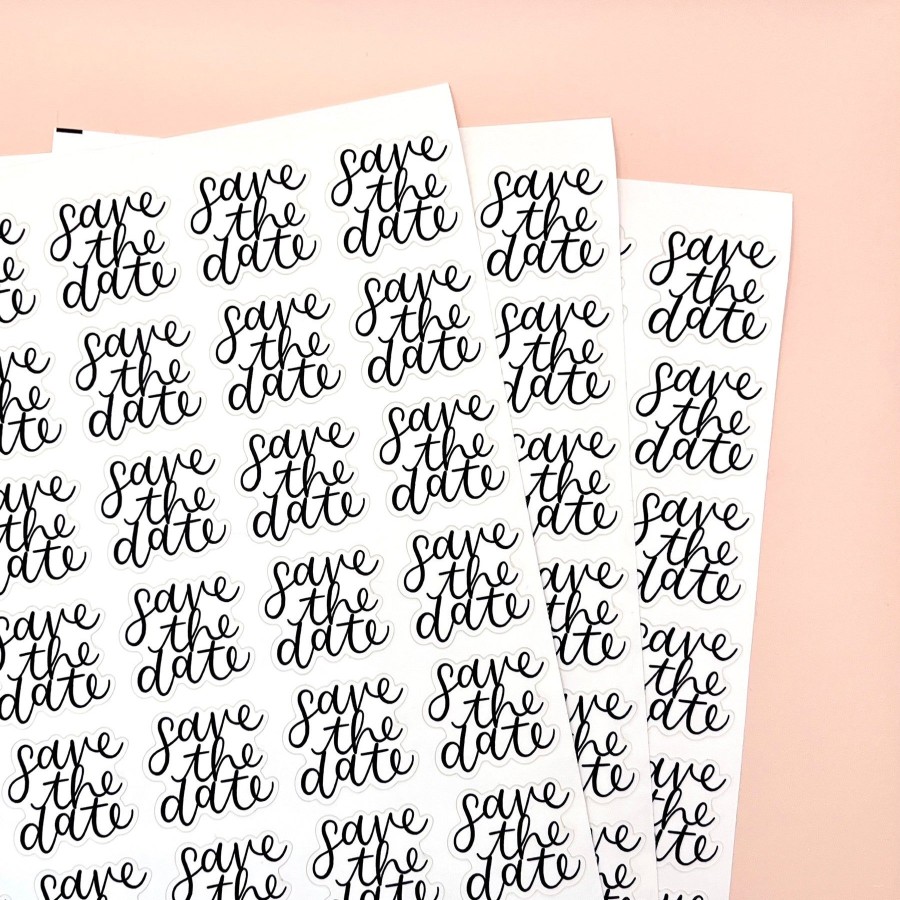 save
the
date
save
the
date
save
the
date
save
the
date
save
the
date
save
the
date
save
the
date
save
the
date
save
the
date
the
date
save
the
date
save
the
date
save
the
date
save
the
date
save
the
date
save
the
date
save
the
date
save
the
date
save
the
date
save
the
date
save
the
date
save
save
the
save
the
date
save
the
date
save
the
date
save
the
date
the
date
save
the
date
save
the
date
save
the
date
save
the
date